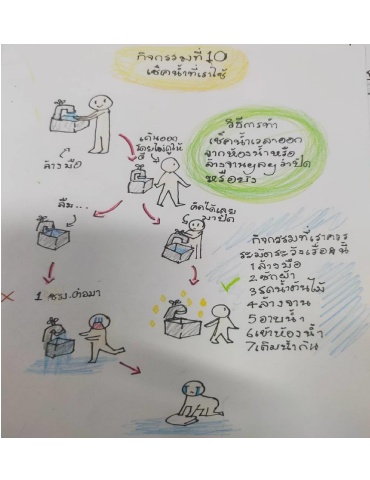 กิจกรรมที่ 10
เช็คน้ำที่เราใช้
ล้างมือ
เดินออก
โดยไม่ดูให้
ดี
วิธีการทำ
เช็คน้ำเวลาออก
จากห้องน้ำหรือ
ล้างจานๆลๆว่าปิด
หรือยัง
ลืม...
คิดได้เลย
มาปิด
กิจกรรมที่เราควร
ระมัดระวังเรื่องนี้
1 ล้างมือ
2 ซักผ้า
3 รดน้ำต้นไม้
4 ล้างจาน
5 อาบน้ำ
6 เข้าห้องน้ำ
7 เติมน้ำกิน
1 ชม. ต่อมา